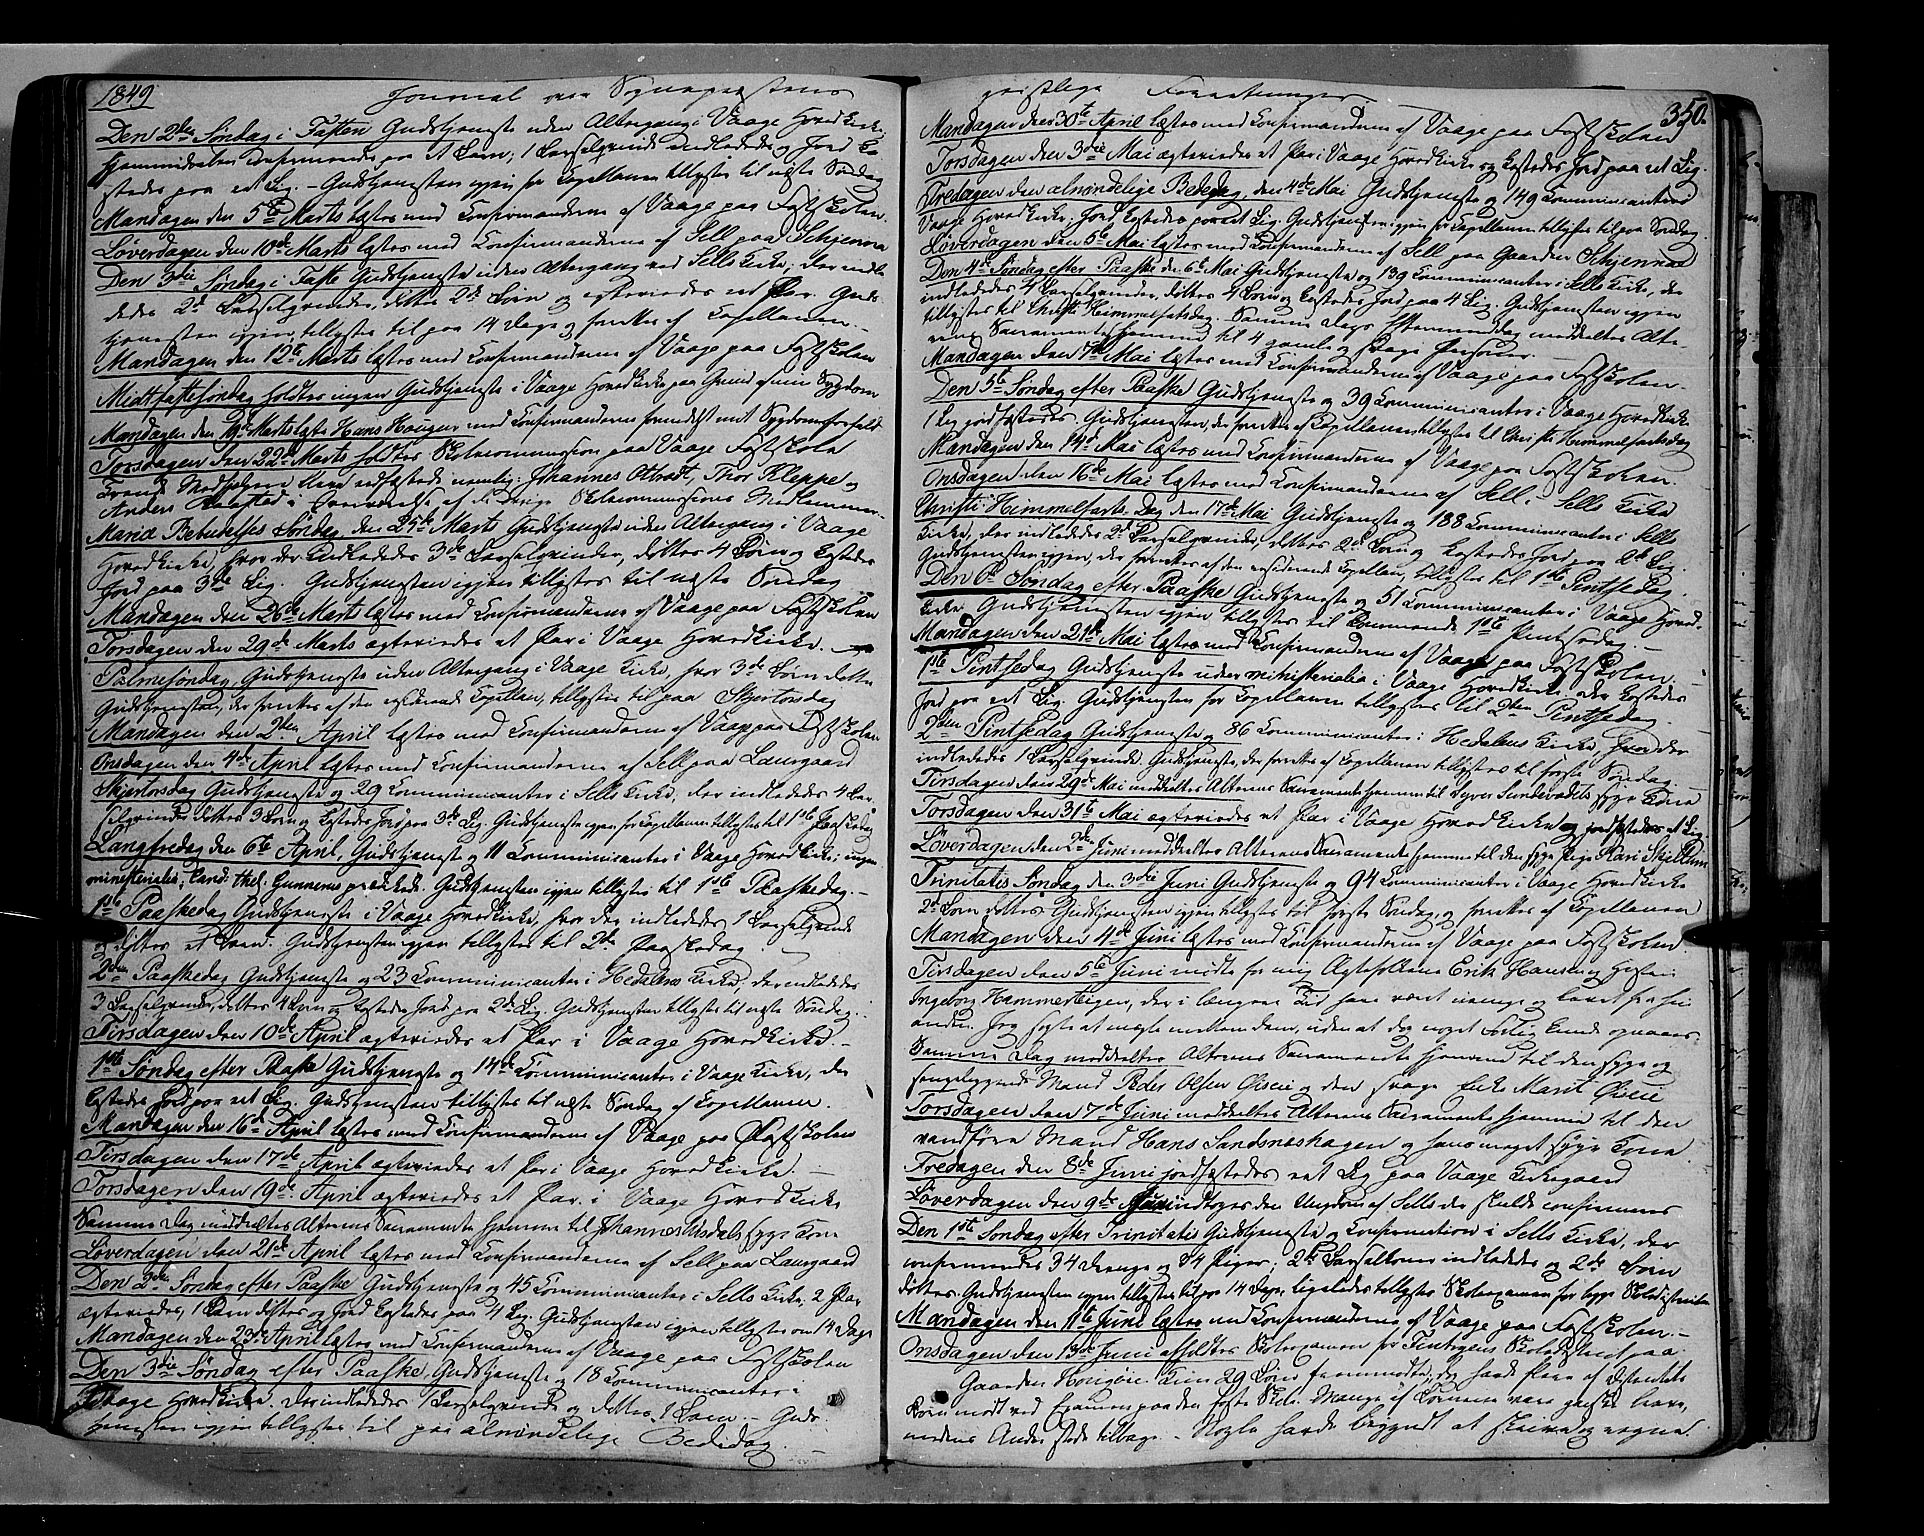 1849 Journal over Sognepræstens
Den 2den Søndag i Fasten Gudstjeneste uden Altergang i Vaage Hovedkirke;
Hjemmedøbte Barn; 1 Barselqvinde indlededes og Jord ka-
stedes paa et Lig. - Gudstjenesten igjen for Capellanen tillystes til næste Søndag
Mandagen den 5te Marts læstes med Confirmanderne af Vaage paa Fastskolen.
Løverdagen den 10de Marts læstes med Confirmanderne af Sell paa Schjenna
Den 3die Søndag i Faste Gudstjeneste uden Altergang ved Sells Kirke; der indle-
dedes 2de Barselqvinder, døbtes 2de Børn og egteviedes et Par. Guds-
tjenesten igjen tillystes til paa 14 Dage og forrettes af Capellanen. -
Mandagen den 12te Marts læstes med Confirmanderne af Vaage paa Fastskolen
Midtfastesøndag holdtes ingen Gudstjeneste i Vaage Hovedkirke paa Grund af min Sygdom
Mandagen den 19de Marts læste Hans Hougen med Confirmanderne formedelst mit Sygdomsforfald
Torsdagen den 22de Marts holdtes Skolecommission paa Vaage Fastskole
nemlig: Johannes Otradt, Thor Kleppe og
Anders i Overværelse af Skolecommissions Medlemmer. -
Mariæ Bebudelses Søndag, den 25de Marts Gudstjeneste uden Altergang i Vaage
Hovedkirke, hvor der indlededes 3de Barselqvinder, døbtes 4 Børn og kastedes
Jord paa 3de Lig. Gudstjenesten igjen tillystes til næste Søndag
Mandagen den 26de Marts læstes med Confirmanderne af Vaage paa Fastskolen
Torsdagen den 29de Marts egteviedes et Par i Vaage Hovedkirke. -
Palmesøndag, Gudstjeneste uden Altergang i Vaage Kirke, hvor 3de Børn døbtes
Gudstjenesten, der forrettes af den residerende Capellan, tillystes til paa Skjertorsdag
Mandagen den 2den April læstes med Confirmanderne af Vaage paa Fastskolen
Onsdagen den 4de April læstes med Confirmanderne af Sell paa Laurgaard
Skjertorsdag Gudstjeneste og 29 Communicanter i Sells Kirke, der indlededes 4 Bar-
selqvinder, døbtes 3 Børn og kastedes Jord paa 3de Lig. Gudstjeneste igjen for Capellanen tillystes til 1ste Paaskedag
Langfredag den 6te April, Gudstjeneste og 11 Communicanter i Vaage Hovedkirke; ingen
ministerialia; Cand. thel. Gunnerus prædikede. Gudstjenesten igjen tillystes til 1ste Paaskedag. -
1ste Paaskedag Gudstjeneste i Vaage Hovedkirke, hvor der indlededes 1 Barselqvinde
og døbtes et Barn. Gudstjenesten igjen tillystes til 2den Paaskedag.
2den Paaskedag Gudstjeneste og 23 Communicanter i Hedalens Kirke, der indlededes
3 Barselqvinder, døbtes 4 Børn og kastedes Jord paa 2de Lig. Gudstjenesten tillystes til næste Søndag.
Tirsdagen den 10de April egteviedes et Par i Vaage Hovedkirke. -
1ste Søndag efter Paaske Gudstjeneste og 14de Communicanter i Vaage Kirke, der
kastedes Jord paa et Lig. Gudstjenesten tillystes til næste Søndag af Capellanen.
Mandagen den 16de April læstes med Confirmanderne af Vaage paa Fastskolen
Tirsdagen den 17de April egteviedes et Par i Vaage Hovedkirke. -
Torsdagen den 19de April egteviedes et Par i Vaage Hovedkirke
Samme Dag meddeeltes Alterens Sacramente hjemme til Johannes syge Kone
Løverdagen den 21de April læstes med Confirmanderne af Sell paa Laurgaard
Den 2den Søndag efter Paaske Gudstjeneste og 45 Communicanter i Sells Kirke, 2 Par
egteviedes, 1 Barn døbtes og Jord kastedes paa 4 Lig. Gudstjenesten igjen tillystes om 14 Dage
Mandagen den 23de April læstes med Confirmanderne af Vaage paa Fastskolen
Den 3die Søndag efter Paaske, Gudstjeneste og 18 Communicanter
i Vaage Hovedkirke. Der indlededes 1 Barselqvinde og døbtes 1 Barn. - Guds-
tjenesten igjen tillystes til paa almindelige Bededag. -
geistlige Forretninger. 350.
Mandagen den 30te April læstes med Confirmanderne af Vaage paa Fastskolen
Torsdagen den 3die Mai egteviedes et Par i Vaage Hovedkirke og kastedes Jord paa et Lig.
Fredagen den almindelige Bededag, den 4de Mai Gudstjeneste og 149 Communicanter i
Vaage Hovedkirke; Jord kastedes paa et Lig. Gudstjenesten igjen for Capellanen tillystes til paa Søndag
Løverdagen den 5te Mai læstes med Confirmanderne af Sell paa Gaarden Schjenna
Den 4de Søndag efter Paaske den 6te Mai Gudstjeneste og 139 Communicanter i Sells Kirke, der
indlededes 4 Barselqvinder, døbtes 4 Børn og kastedes Jord paa 4 Lig. Gudstjenesten igjen
tillystes til Christi Himmelfartsdag. Samme Dags Eftermiddag meddeeltes Alte-
rens Sacramente hjemme til 4 gamle og svage Personer. -
Mandagen den 7de Mai læstes med Confirmanderne af Vaage paa Fastskolen. -
Den 5te Søndag efter Paaske Gudstjeneste og 39 Communicanter i Vaage Hovedkirke
1 Lig jordfæstedes. Gudstjenesten, der forrettes af Capellanen tillystes til Christi Himmelfartsdag
Mandagen den 14de Mai læstes med Confirmanderne af Vaage paa Fastskolen.
Onsdagen den 16de Mai læstes med Confirmanderne af Sell i Sells Kirke
Christi Himmelfarts Dag den 17de Mai Gudstjeneste og 188 Communicanter i Sells
Kirke, der indlededes 2de Barselqvinder, døbtes 2de Børn og kastedes Jord paa 2de Lig.
Gudstjenesten igjen, der forrettes af den residerende Capellan, tillystes til 1ste Pintsedag.
Den 6te Søndag efter Paaske Gudstjeneste og 51 Communicanter i Vaage Hoved-
kirke Gudstjenesten igjen tillystes til kommende 1ste Pintsedag. -
Mandagen den 21de Mai læstes med Confirmanderne af Vaage paa Fastskolen. -
1ste Pintsedag Gudstjeneste uden ministerialia i Vaage Hovedkirke. Der kastedes
Jord paa et Lig. Gudstjenesten for Capellanen tillystes til 2den Pintsedag.
2den Pintsedag Gudstjeneste og 86 Communicanter i Hedalens Kirke, hvor der
indlededes 1 Barselqvinde. Gudstjeneste, der forrettes af Capellanen tillystes til første Søndag
Tirsdagen den 29de Mai meddeeltes Alterens Sacramente hjemme til Syver Sundevadets syge Kone
Torsdagen den 31te Mai egteviedes et Par i Vaage Hovedkirke og jordfæstedes et Lig.
Løverdagen den 2den Juni meddeeltes Alterens Sacramente hjemme til den syge Pige Kari Skjellum
Trinitatis Søndag den 3die Juni Gudstjeneste og 94 Communicanter i Vaage Hovedkirke
2de Børn døbtes Gudstjenesten igjen tillystes til første Søndag, og forrettes af Capellanen
Mandagen den 4de Juni læstes med Confirmanderne af Vaage paa Fastskolen
Tirsdagen den 5te Juni mødte for mig Ægtefolkene Erik Hansen og Hustru
Ingeborg Hammersteigen, der i længere Tid have været uenige og levet fra hin-
anden. Jeg søgte at mægle mellem dem, uden at dog noget Forlig kunde opnaaes.
Samme Dag meddeeltes Alterens Sacramente hjemme til den syge og
sengeliggende Mand Peder Olsen Øiseie og den svage Enke Marit Øiseie
Torsdagen den 7de Juni meddeeltes Alterens Sacramente hjemme til den
vanføre Mand Hans Sandsneshagen og hans meget syge Kone
Fredagen den 8de Juni jordfæstedes et Lig paa Vaage Kirkegaard
Løverdagen den 9de Juni indtoges den Ungdom af Sell der skulde confirmeres
Den 1ste Søndag efter Trinitatis Gudstjeneste og Confirmation i Sells Kirke, der
confirmeredes 34 Drenge og 34 Piger; 2de Barselkoner indlededes og 2de Børn
døbtes. Gudstjenesten igjen tillystes til paa 14 Dage, ligeledes tillystes Skoleexamen for begge Skoledistricter
Mandagen den 11te Juni læstes med Confirmanderne af Vaage paa Fastskolen. -
Onsdagen den 13de Juni afholdtes Skoleexamen for Tindbygens Skoledistrict paa
Gaarden Kun 29 Børn fremmødte, der havde flere af Districtets
Børn mødt ved Examen paa den faste Skole. Mange af Børnene vare ganske brave,
medens Andre stode tilbage. - Nogle havde begyndt at skrive og regne.